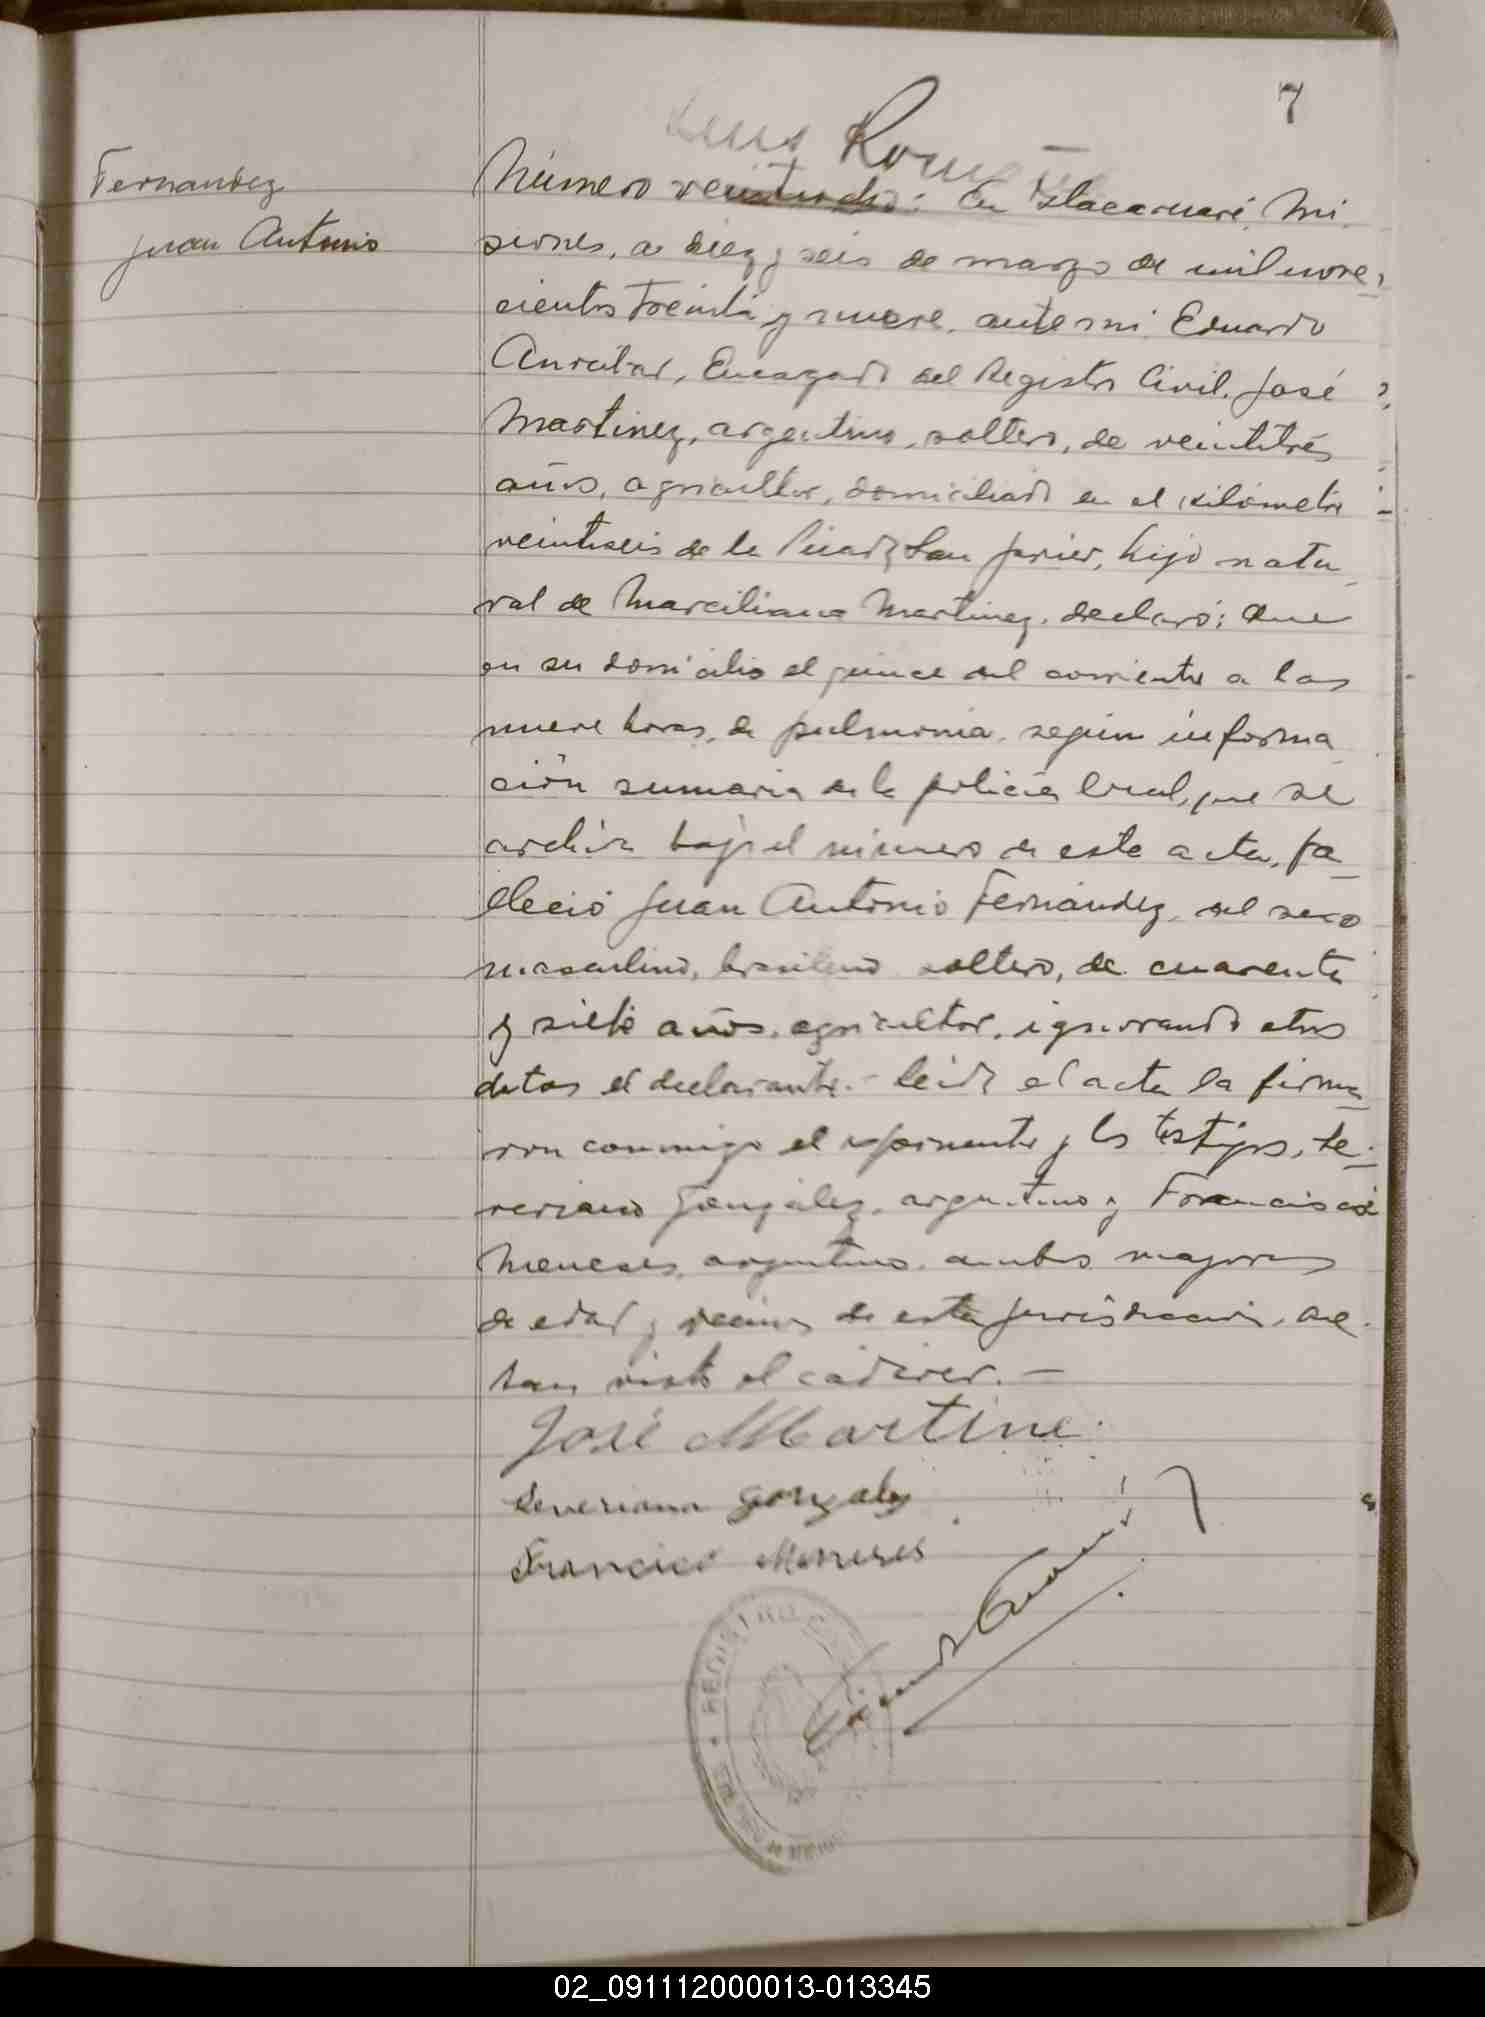 7
Luis Rom
Fernandez
Juan Antonio
Número veintiocho: En Itacaruaré, Mi
siones, a diez y seis de marzo de mil nove_
cientos treinta y nueve, ante mi Eduardo
Encargado del Registro Civil, José
Martinez, argentino, soltero, de veintitrés
años, agricultor, domiciliado en el kilómetro
veintiseis de la Picada San Javier, hijo natu_
ral de Marciliana Martinez, declaró: Que
en su domicilio el quince del corriente a las
nueve horas, de pulmonia, según informa
ción sumaria de la policía local, que se
archiva bajo el número de este acta, fa_
lleció Juan Antonio Fernández, del sexo
masculino, brasilero soltero, de cuarenta
y siete años, agricultor, ignorando otros
datos el declarante.- Leida el acta la firma_
ron conmigo el exponente y los testigos, Se_
veriano González, argentino y Francisco
Meneses, argentino, ambos mayores
de edad y vecinos de esta jurisdicción, que
han visto el cadáver.-
José Martine
Severiano Gonzalez
Francisco Meneses
REGISTRO
02_091112000013-013345